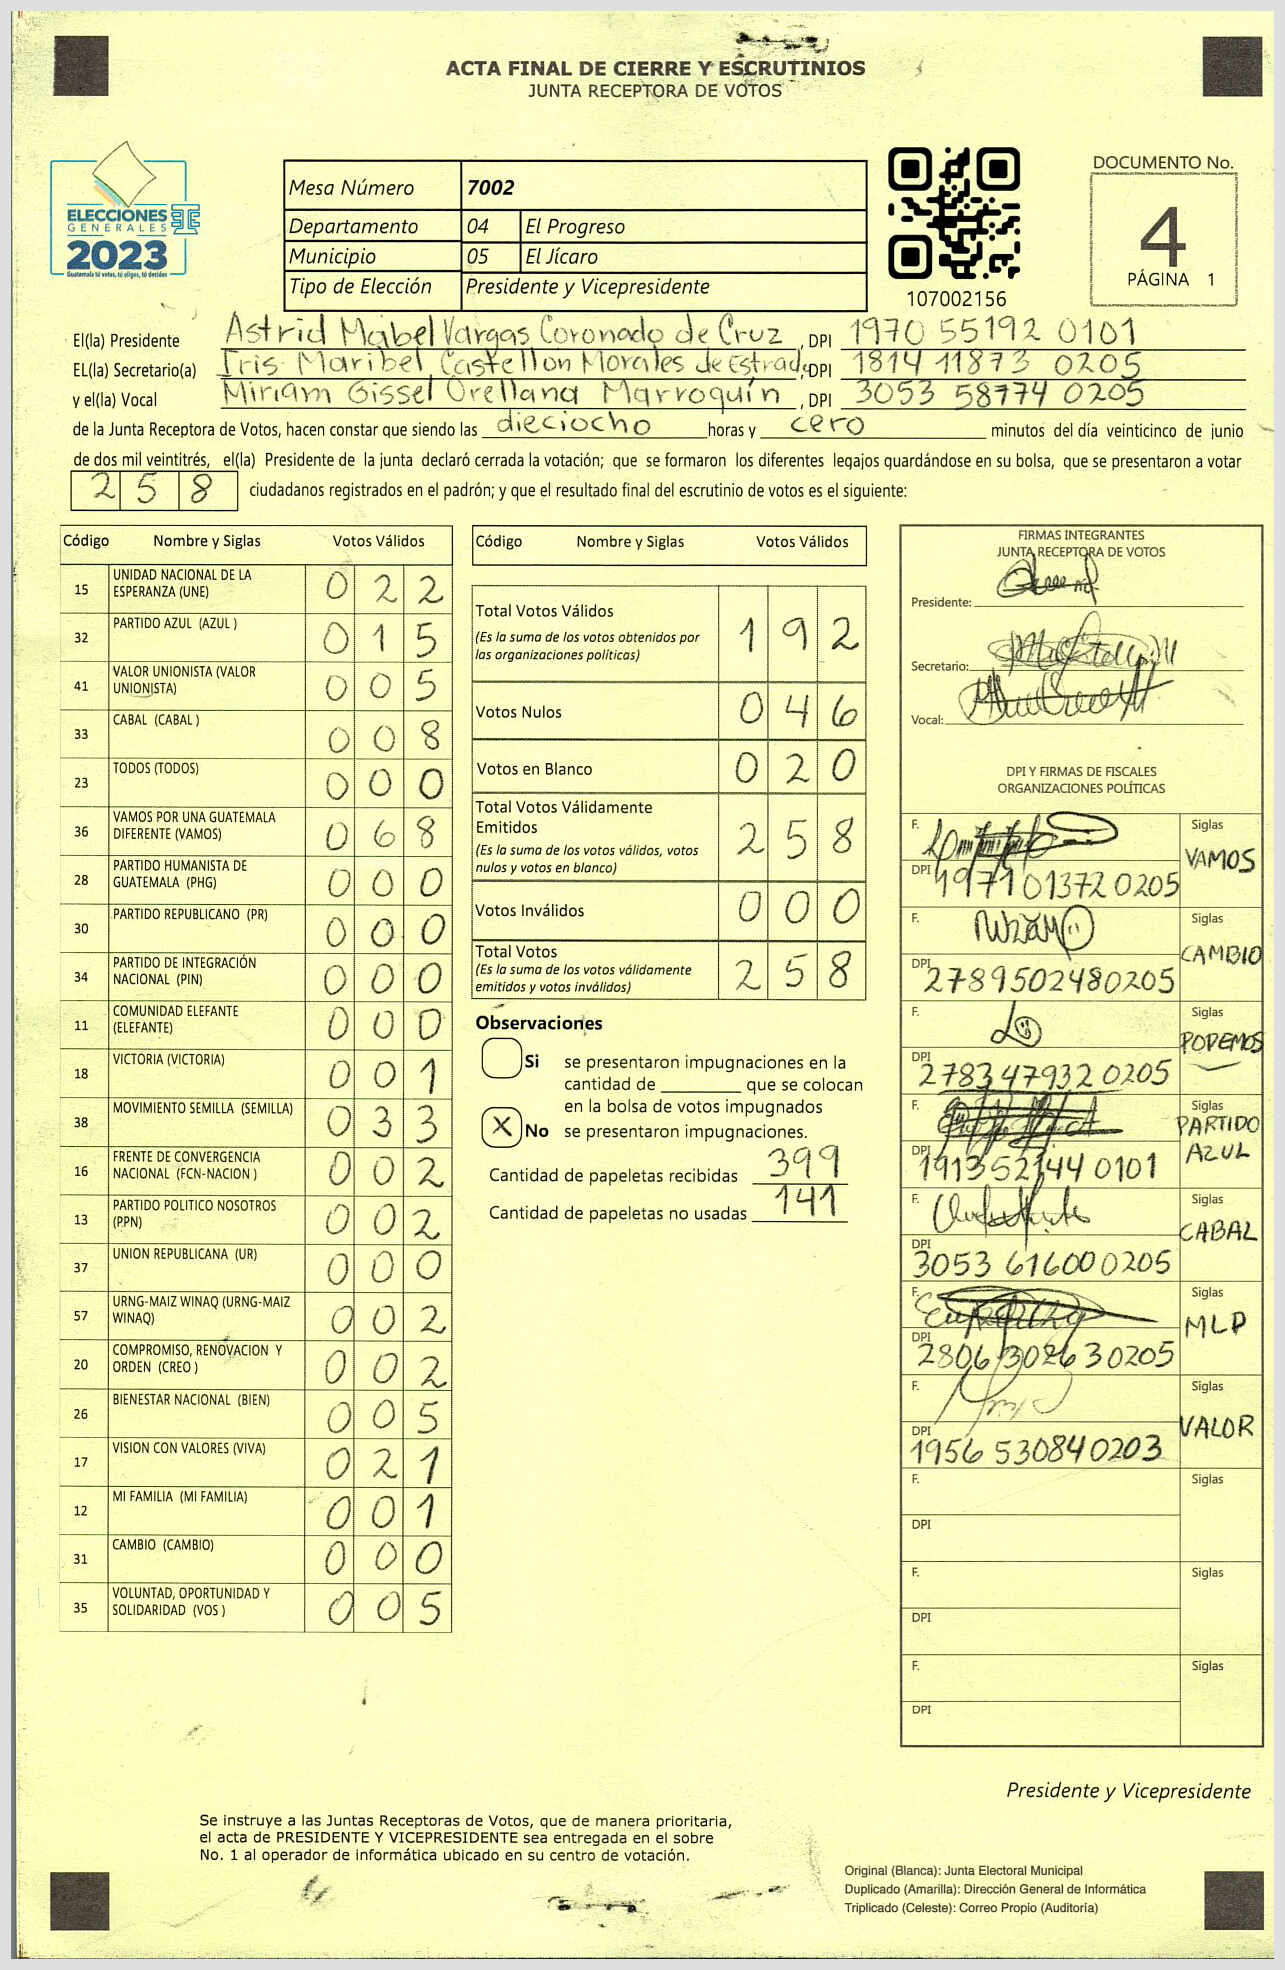 ACTA FINAL DE CIERRE Y ESCRUTINIOS
JUNTA RECEPTORA DE VOTOS
ELECCIONES
GENERALES
2023
Guatemala tú votas, tú eliges, tú decides
Mesa Número 7002
Departamento 04 El Progreso
Municipio 05 El Jícaro
Tipo de Elección Presidente y Vicepresidente
107002156
DOCUMENTO No.
4
PÁGINA 1
El(la) Presidente Astrid Mabel Vargas Coronado de Cruz, DPI 1970 55192 0101
EL(la) Secretario(a) Iris Maribel Castellon Morales de Estrada, DPI 1814 11873 0205
y el(la) Vocal Miriam Gissel Orellana Marroquín, DPI 3053 58774 0205
de la Junta Receptora de Votos, hacen constar que siendo las dieciocho horas y cero minutos del día veinticinco de junio
de dos mil veintitrés, el(la) Presidente de la junta declaró cerrada la votación; que se formaron los diferentes legajos guardándose en su bolsa, que se presentaron a votar
258 ciudadanos registrados en el padrón; y que el resultado final del escrutinio de votos es el siguiente:
Código Nombre y Siglas Votos Válidos
15 UNIDAD NACIONAL DE LA ESPERANZA (UNE) 022
32 PARTIDO AZUL (AZUL ) 015
41 VALOR UNIONISTA (VALOR UNIONISTA) 005
33 CABAL (CABAL ) 008
23 TODOS (TODOS) 000
36 VAMOS POR UNA GUATEMALA DIFERENTE (VAMOS) 068
28 PARTIDO HUMANISTA DE GUATEMALA (PHG) 000
30 PARTIDO REPUBLICANO (PR) 000
34 PARTIDO DE INTEGRACIÓN NACIONAL (PIN) 000
11 COMUNIDAD ELEFANTE (ELEFANTE) 000
18 VICTORIA (VICTORIA) 001
38 MOVIMIENTO SEMILLA (SEMILLA) 033
16 FRENTE DE CONVERGENCIA NACIONAL (FCN-NACION ) 002
13 PARTIDO POLITICO NOSOTROS (PPN) 002
37 UNION REPUBLICANA (UR) 000
57 URNG-MAIZ WINAQ (URNG-MAIZ WINAQ) 002
20 COMPROMISO, RENOVACION Y ORDEN (CREO ) 002
26 BIENESTAR NACIONAL (BIEN) 005
17 VISION CON VALORES (VIVA) 021
12 MI FAMILIA (MI FAMILIA) 001
31 CAMBIO (CAMBIO) 000
35 VOLUNTAD, OPORTUNIDAD Y SOLIDARIDAD (VOS ) 005
Código Nombre y Siglas Votos Válidos
Total Votos Válidos 192
(Es la suma de los votos obtenidos por
las organizaciones políticas)
Votos Nulos 046
Votos en Blanco 020
Total Votos Válidamente
Emitidos 258
(Es la suma de los votos válidos, votos
nulos y votos en blanco)
Votos Inválidos 000
Total Votos 258
(Es la suma de los votos válidamente
emitidos y votos inválidos)
Observaciones
Si se presentaron impugnaciones en la
cantidad de ________ que se colocan
en la bolsa de votos impugnados
X No se presentaron impugnaciones.
Cantidad de papeletas recibidas 399
Cantidad de papeletas no usadas 141
FIRMAS INTEGRANTES
JUNTA RECEPTORA DE VOTOS
Presidente:
Secretario:
Vocal:
DPI Y FIRMAS DE FISCALES
ORGANIZACIONES POLÍTICAS
F. Siglas
VAMOS
DPI 1971 01372 0205
F. Siglas
CAMBIO
DPI 2789502480205
F. Siglas
PODEMOS
DPI 2783 47932 0205
F. Siglas
PARTIDO
AZUL
DPI 191352144 0101
F. Siglas
CABAL
DPI 3053 616000205
F. Siglas
MLP
DPI 2806 302630205
F. Siglas
VALOR
DPI 1956 530840203
F. Siglas
DPI
F. Siglas
DPI
F. Siglas
DPI
Presidente y Vicepresidente
Se instruye a las Juntas Receptoras de Votos, que de manera prioritaria,
el acta de PRESIDENTE Y VICEPRESIDENTE sea entregada en el sobre
No. 1 al operador de informática ubicado en su centro de votación.
Original (Blanca): Junta Electoral Municipal
Duplicado (Amarilla): Dirección General de Informática
Triplicado (Celeste): Correo Propio (Auditoría)